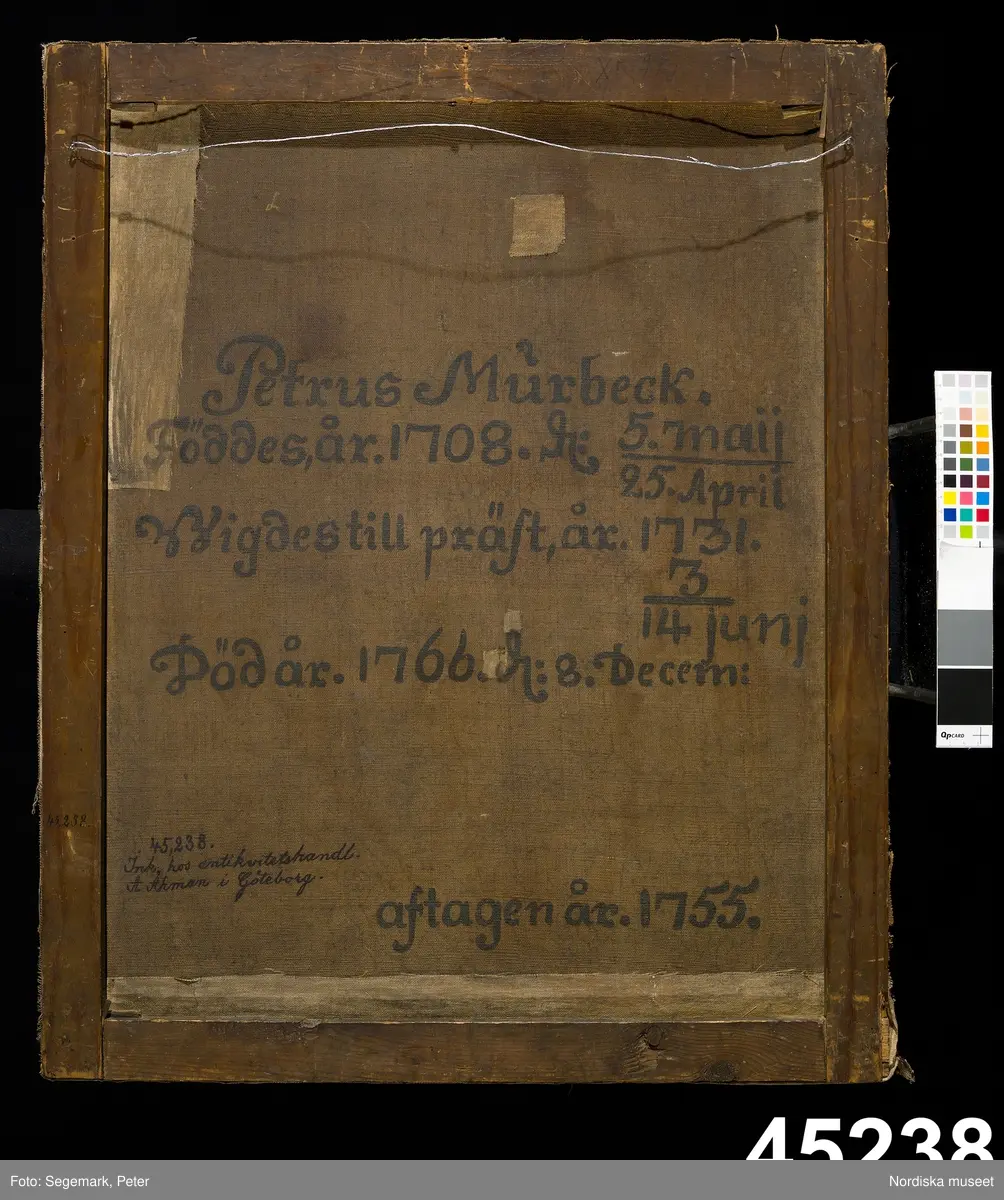 Petrus Mùrbeck.
Föddes, år. 1708. d: 5. maij
25. April
Wigdes till präst, år. 1731.
3
14 junj
Död år. 1766. d: 8. Decem:
45238
45,238.
Ink. hos antikvitetshandl.
A Akman i Göteborg.
aftagen år. 1755.
QPCARD
45238
Foto: Segemark, Peter
Nordiska museet